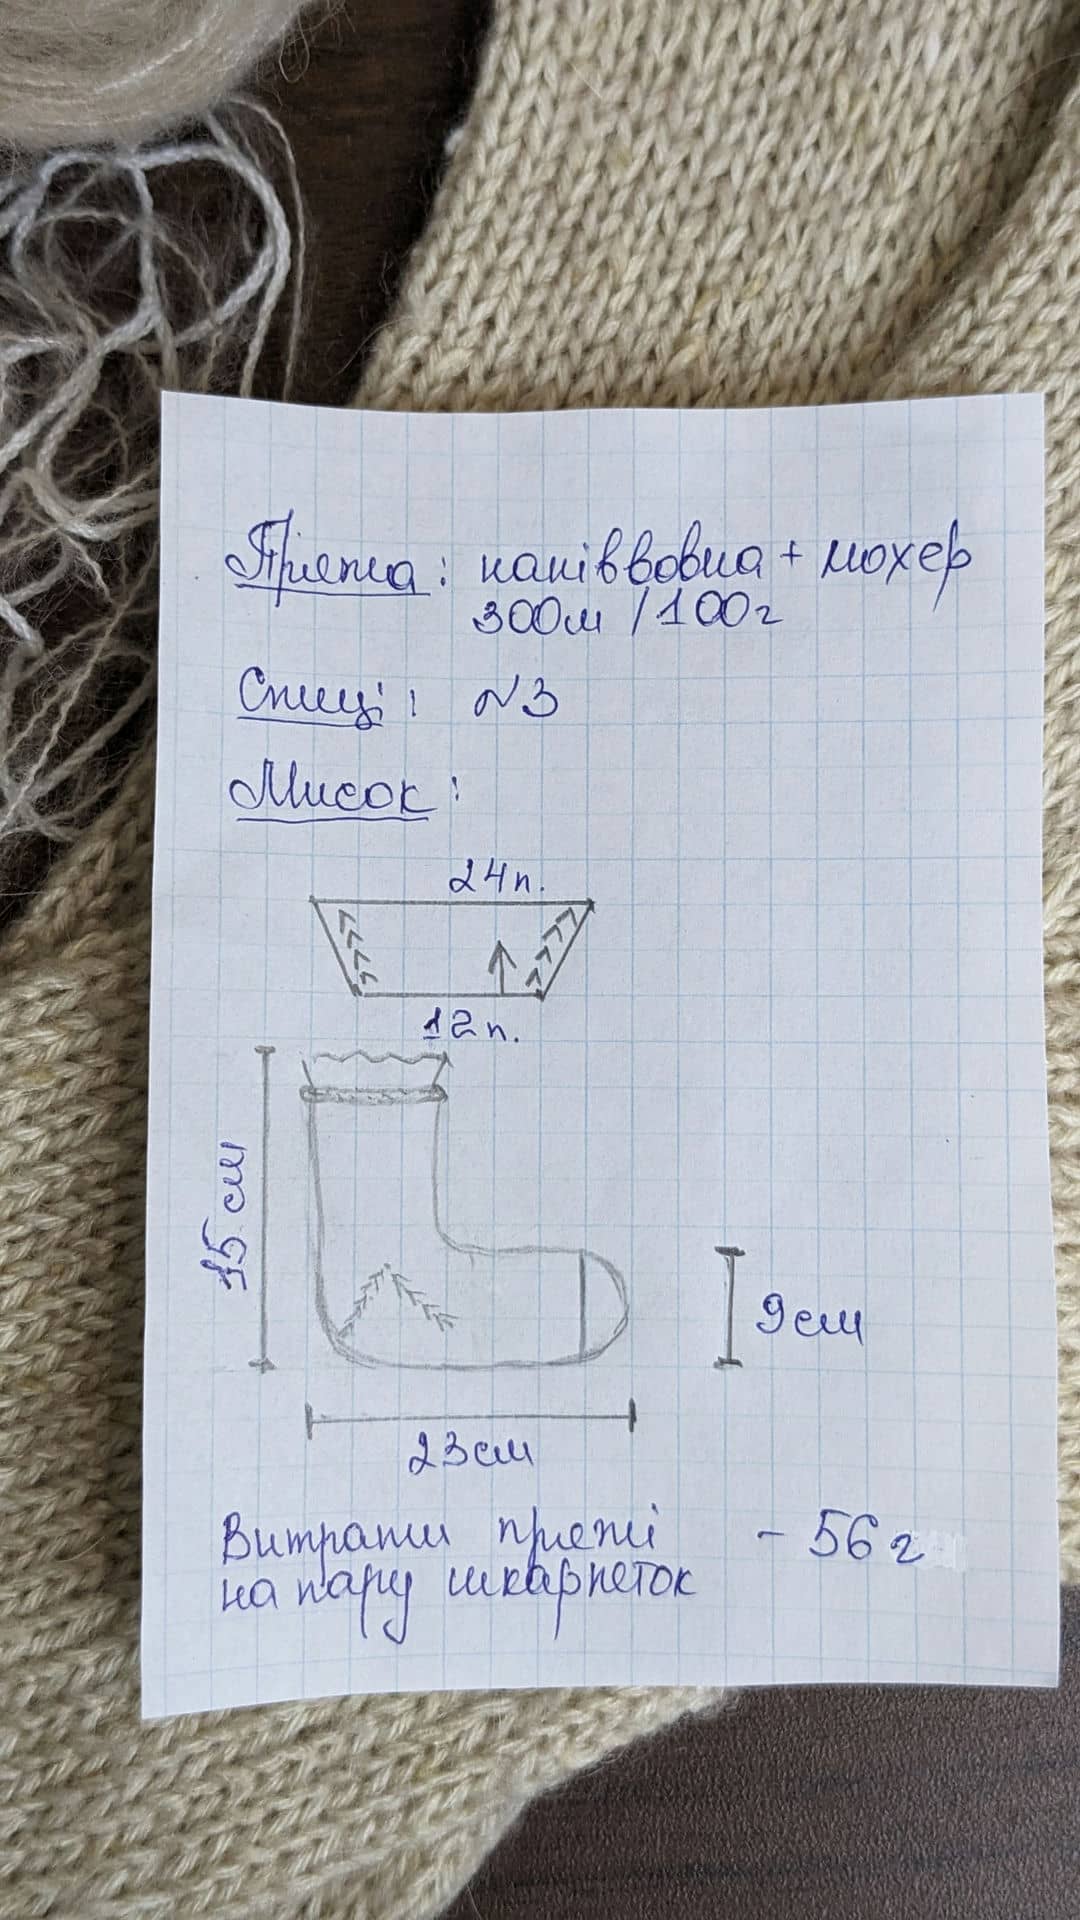 Пряжа: напіввовна + мохер
300м / 100г
Спиці: №3
Мисок:
24п.
12п.
15 см
9см
23см
Витрати пряжі - 56 г
на пару шкарпеток